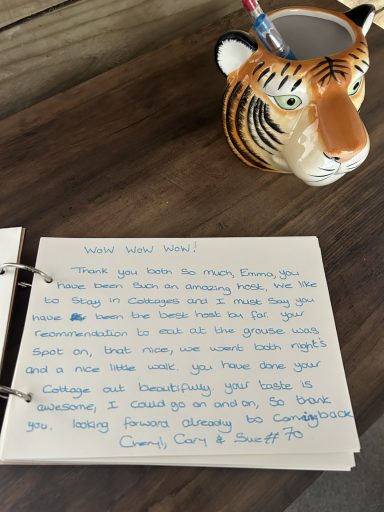 WOW WOW WOW!
Thank you both so much, Emma, you
have been such an amazing host, we like
to stay in Cottages and I must say you
have been the best host by far. your
reommendation to eat at the grouse was
spot on, that nice, we went both night's
and a nice little walk. you have done your
Cottage out beautifully. your taste is
awesome, I could go on and on, So thank
you. looking forward already to Coming back
Cheryl, Gary & Sue # 70